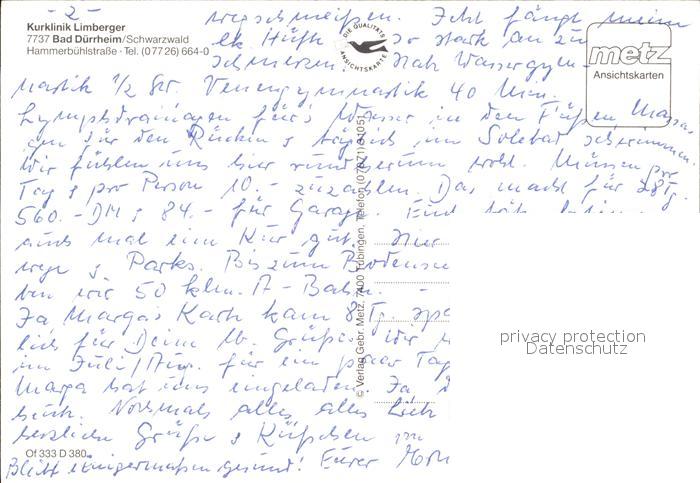 - 2 -
Kurklinik Limberger
7737 Bad Dürrheim/Schwarzwald
Hammerbühlstraße · Tel. (07726) 664-0
DIE QUALITÄTS ANSICHTSKARTE
metz
Ansichtskarten
wegschmeißen. Jetzt fängt meine
lk. Hüfte so stark an zu
schmerzen. Statt Wassergym-
nastik 1/2 Std. Venengymnastik 40 Min.
Lymphdrainagen für's Wasser in den Füßen, Massa-
gen für den Rücken & täglich im Solebad schwimmen.
Wir fühlen uns hier rundherum wohl. Müssen pro
Tag & pro Person 10.- zuzahlen. Das macht für 28 Tg.
560.- DM & 84.- für Garage. Und
auch mal eine Kur gut. Nur
wege & Parks. Bis zum Bodensee
ben wir 50 klm. A-Bahn. -
Ja Margas Karte kam 8 Tg. spä
lich für Deine lb. Grüße. Wir
im Juli/Aug. für ein paar Tag
Marga hat uns eingeladen. Ja
such. Nochmals alles, alles Lieb
herzliche Grüße & Küßchen
Bleibt einigermaßen gesund! Eurer
© Verlag Gebr. Metz, 7400 Tübingen, Telefon (07071) 31051
Of 333 D 380
privacy protection
Datenschutz